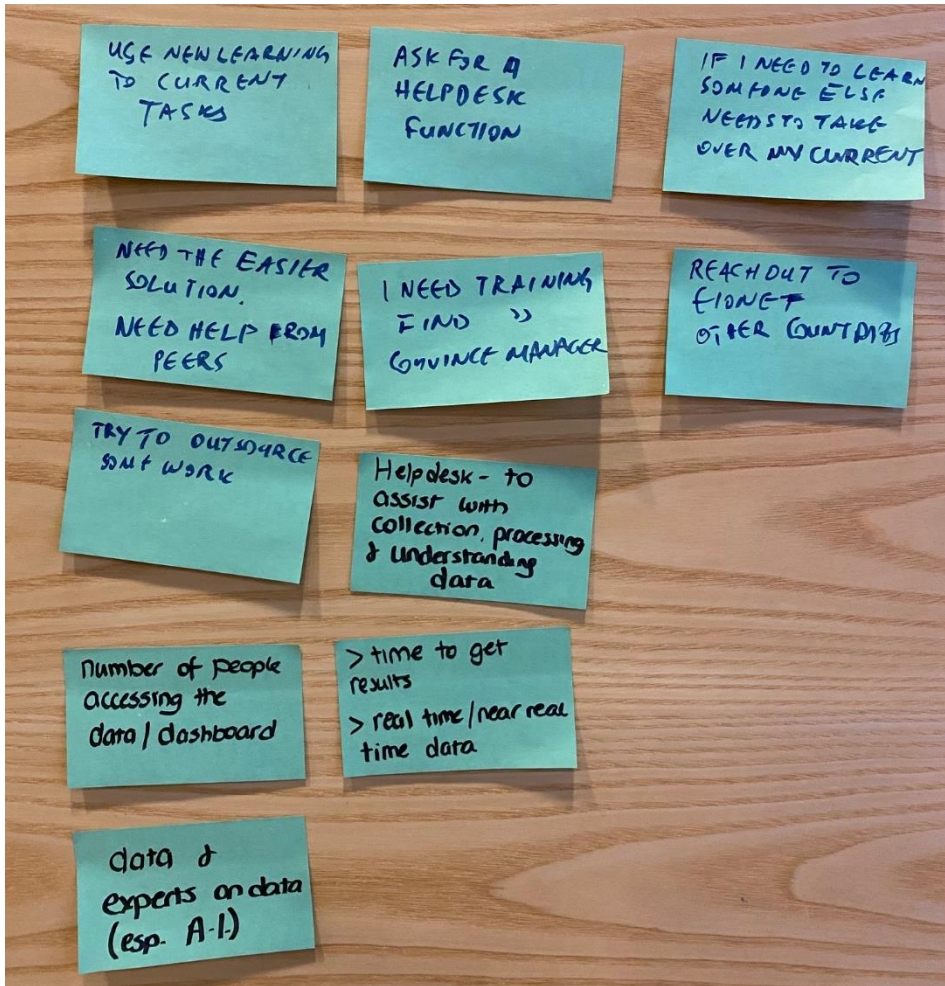 USE NEW LEARNING
TO CURRENT
TASKS
ASK FOR A
HELPDESK
FUNCTION
IF I NEED TO LEARN
SOMEONE ELSE
NEEDS TO TAKE
OVER MY CURRENT
NEED THE EASIER
SOLUTION.
NEED HELP FROM
PEERS
I NEED TRAINING
FIND "
CONVINCE MANAGER
REACH OUT TO
EIONET
OTHER COUNTRIES
TRY TO OUTSOURCE
SOME WORK
Helpdesk - to
assist with
collection, processing
& understanding
data
number of people
accessing the
data / dashboard
> time to get
results
> real time/near real
time data
data &
experts on data
(esp. A.I.)